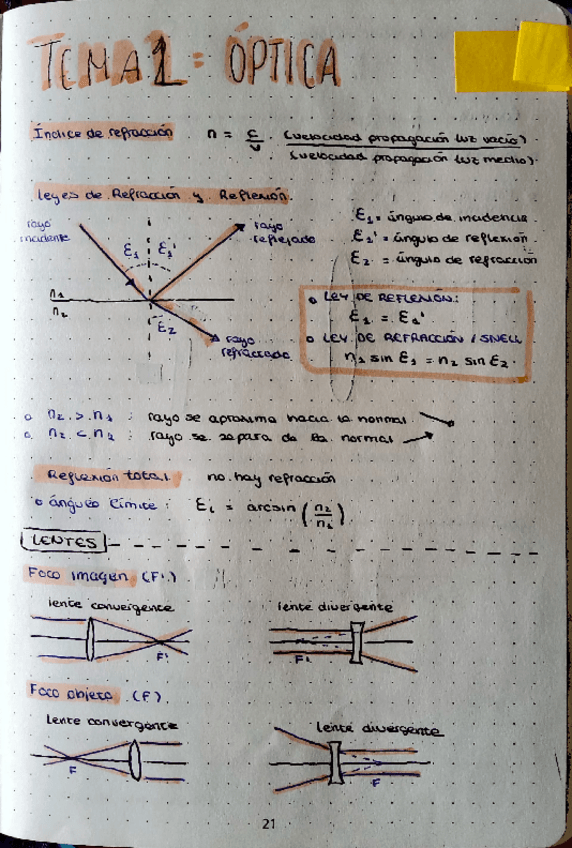 TEMA 1 = ÓPTICA
Índice de refracción n = c/v . (velocidad propagación luz vacío) / (velocidad propagación luz medio).
Leyes de Refracción y Reflexión.
rayo incidente
rayo reflejado
ε1 ε1'
n1
n2
ε2
rayo refractado
ε1 = ángulo de incidencia.
ε1' = ángulo de reflexión.
ε2 = ángulo de refracción
o LEY DE REFLEXIÓN:
ε1 = ε1'
o LEY DE REFRACCIÓN / SNELL
n1 sin ε1 = n2 sin ε2.
o n2 > n1 : rayo se aproxima hacia la normal
o n2 < n1 : rayo se separa de la normal
Reflexión total no hay refracción
o ángulo límite : εL = arcsin (n2/n1)
LENTES
Foco imagen (F')
lente convergente
F'
lente divergente
F'
Foco objeto (F)
lente convergente
F
lente divergente
F
21